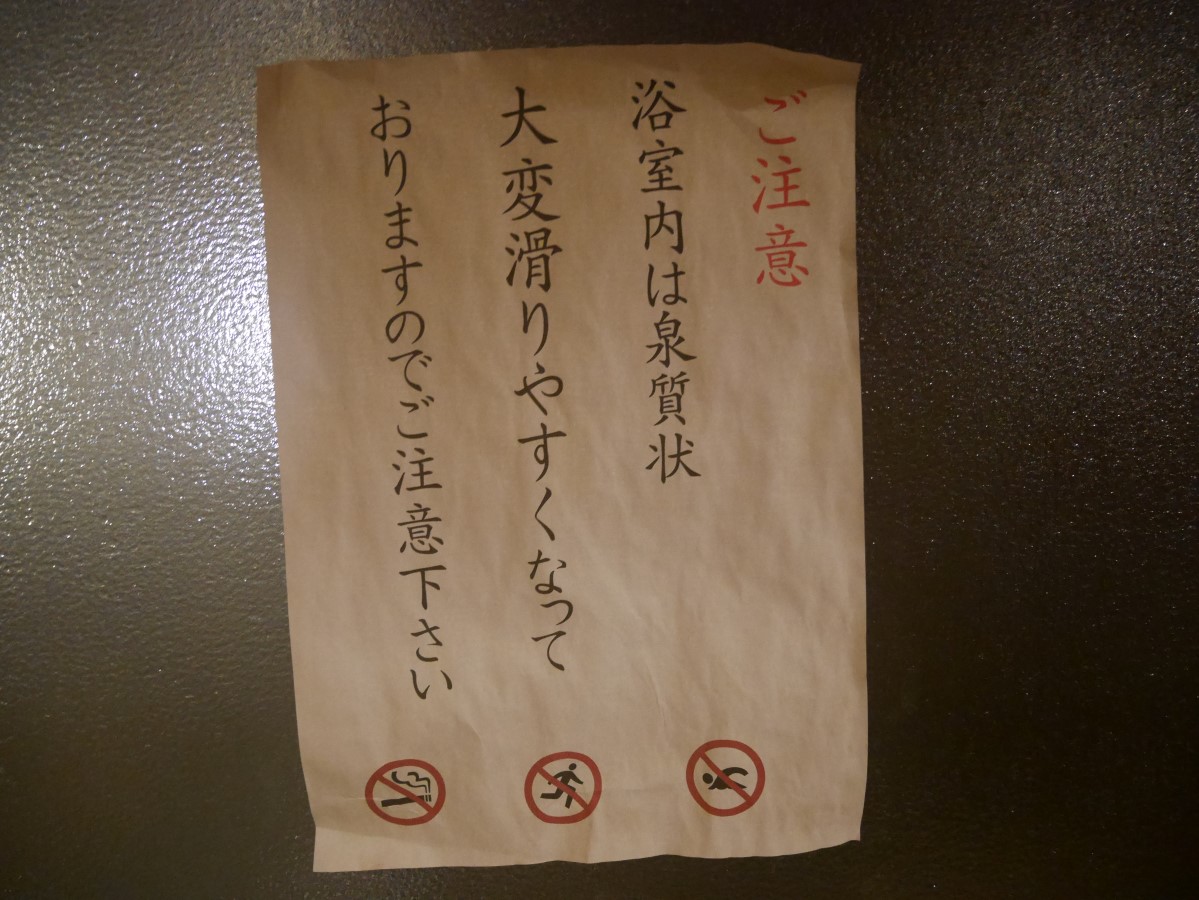 ご注意
浴室内は泉質状
大変滑りやすくなって
おりますのでご注意下さい